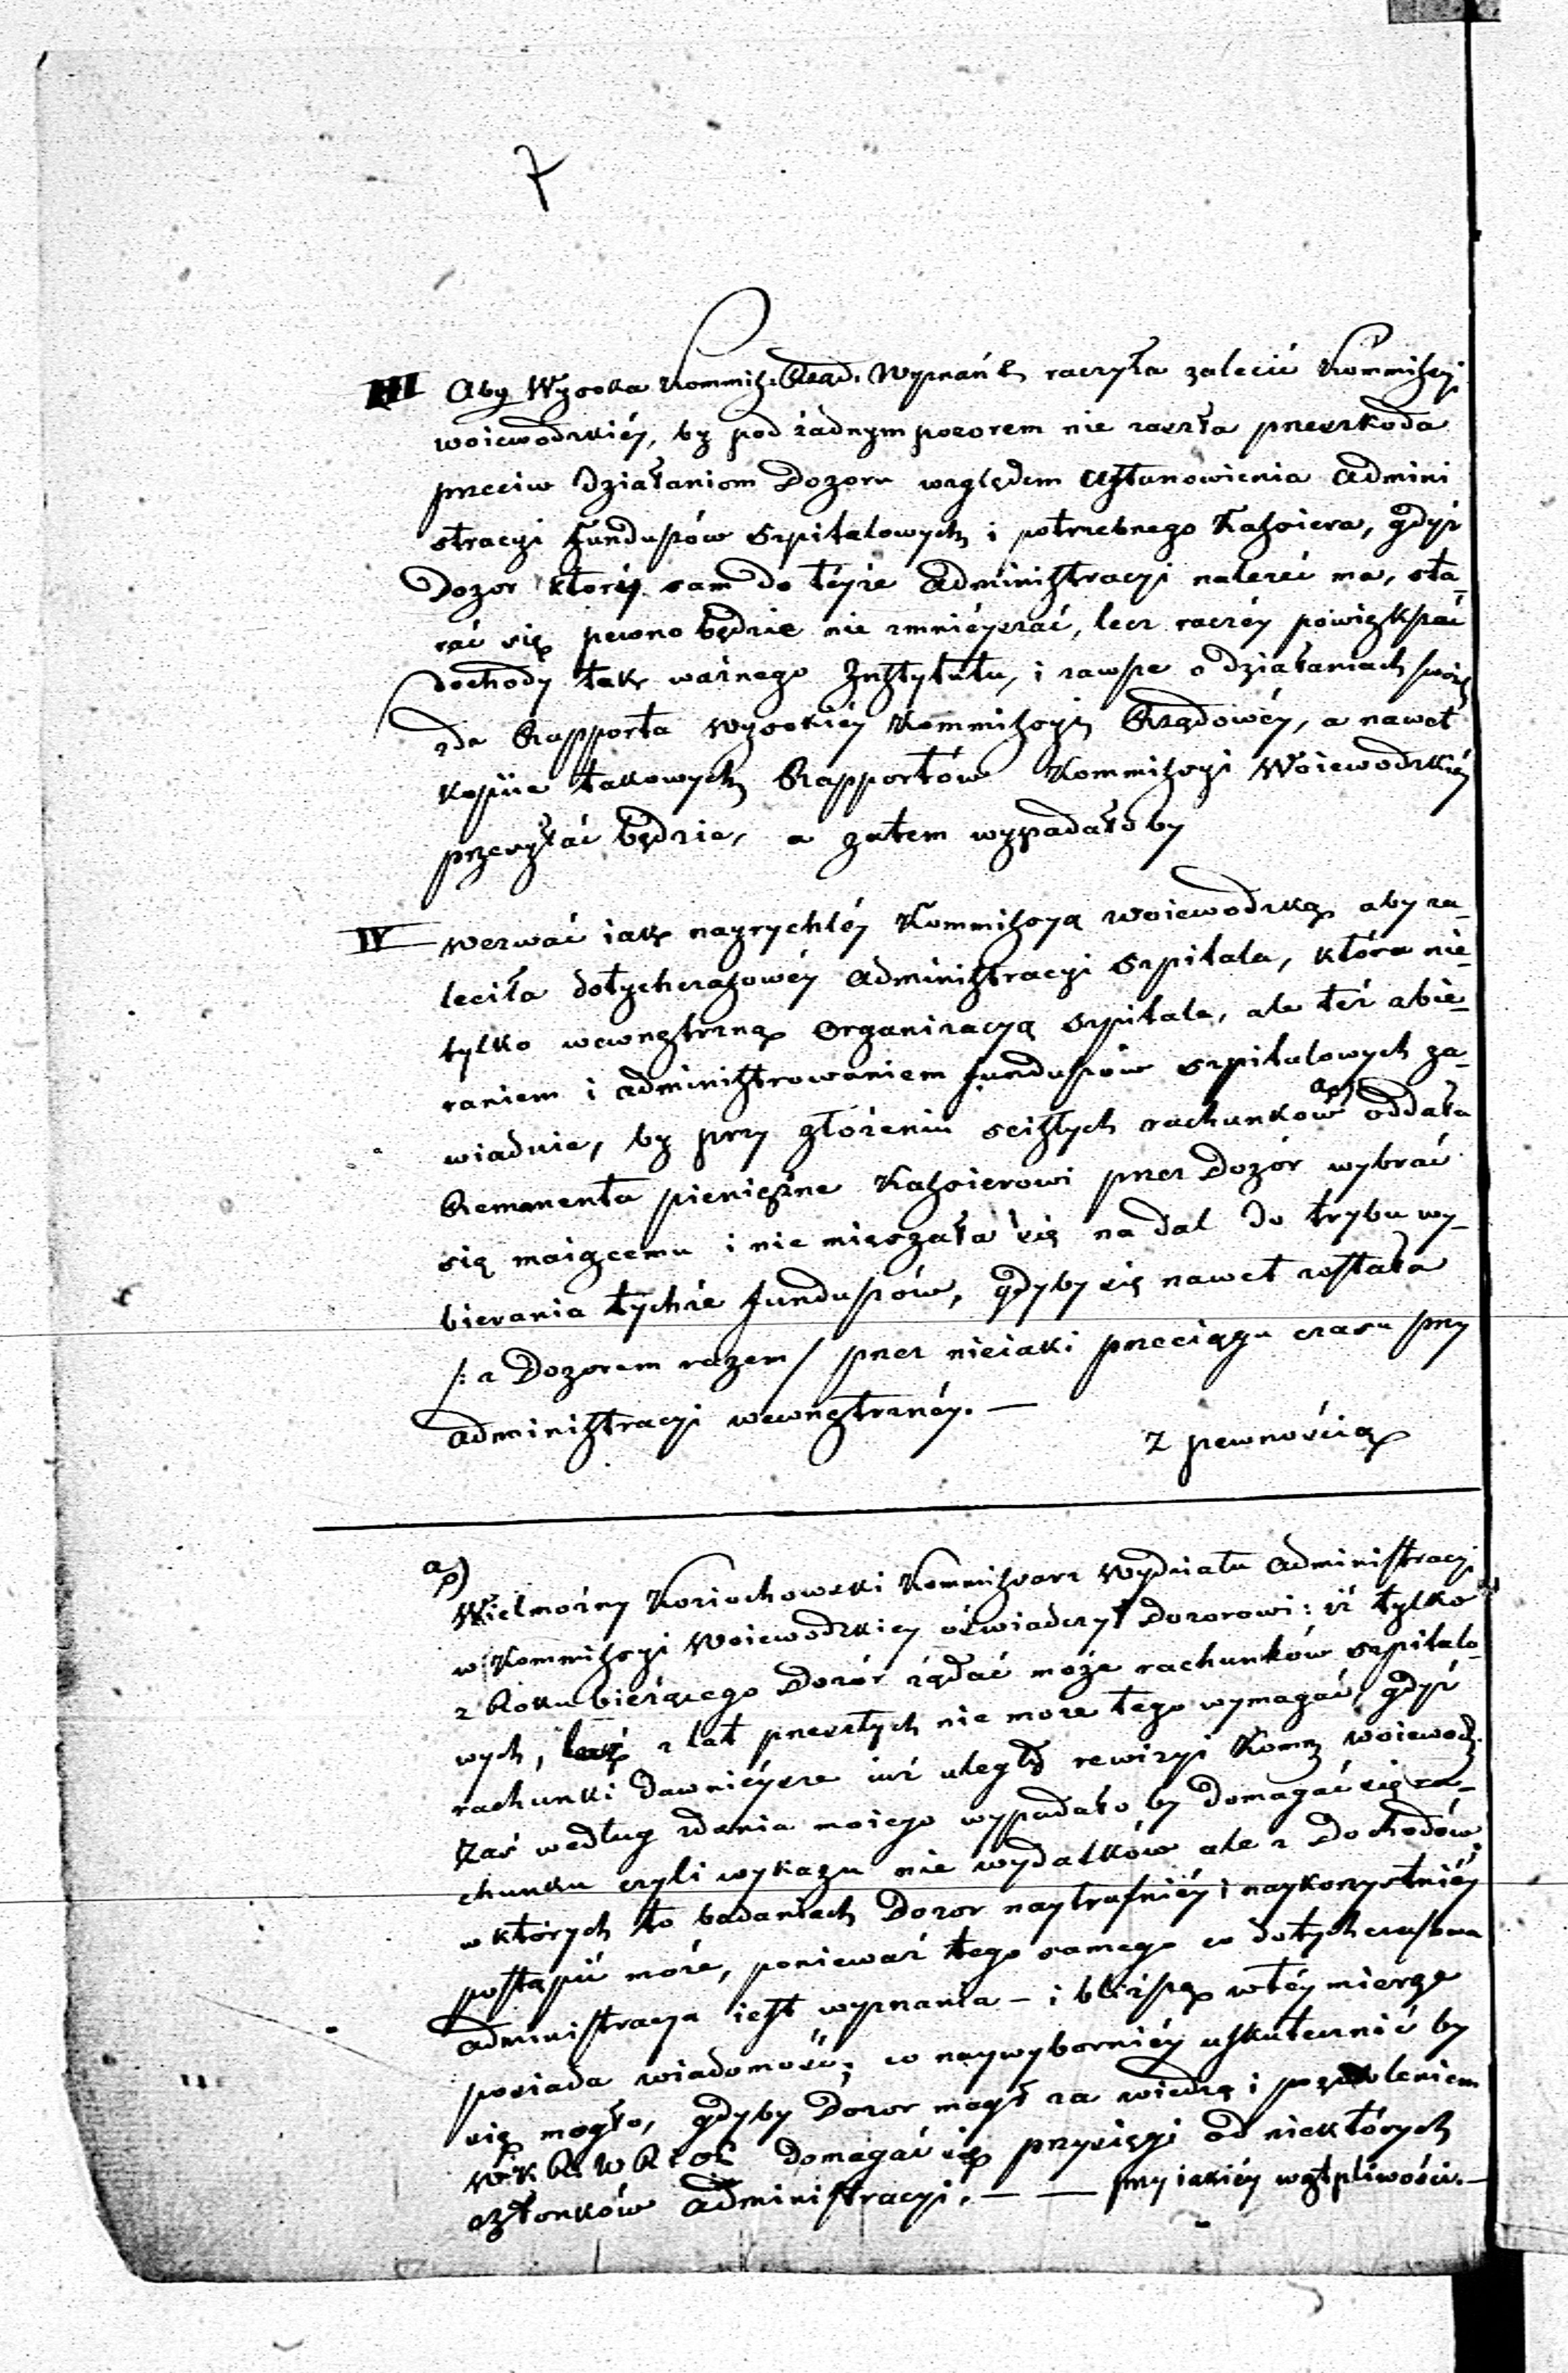 7
III Aby Wysoka Kommiss: Rząd. Wyznań &c raczyła zalecić Kommissyi
Woiewodzkiéy, by pod żadnym pozorem nie zaszła przeszkoda
przeciw działaniom Dozoru względem ustanowienia Admini
stracyi Funduszów Szpitalowych i potrzebnego Kassiera, gdyż
Dozor który sam do téyże Administracyi należeć ma, sta-
rać się pewno będzie nie zmniéyszać, lecz raczéy powiększać
dochody tak ważnego Instytutu, i zawsze o działaniach swoich
zda Rapporta Wysokiéy Kommissyi Rządowéy, a nawet
kopiie takowych Rapportów Kommissyi Woiewodzkiéy
przesyłać będzie, a zatem wypadałoby
IV wezwać iak nayrychléy Kommissyą Woiewodzką aby za-
leciła dotychczasowéy Administracyi Szpitala, która nie-
tylko wewnętrzną Organizacyą Szpitala, ale też zbie-
raniem i administrowaniem funduszów szpitalowych za-
wiaduie, by przy złożeniu scisłych rachunków a) oddała
Remanenta pieniężne Kassierowi przez Dozór wybrać
się maiącemu i nie mięszała się na dal do trybu wy-
bierania tychże funduszów, gdyby się nawet została
/: z Dozorem razem / przez nieiaki przeciągu czasu przy
administracyi wewnętrznéy. —
Z pewnością
a)
Wielmożny Koziochowski Kommissarz Wydziału Administracyi
w Kommissyi Woiewodzkiey oświadczył Dozorowi: iż tylko
z Roku bieżącego Dozór żądać może rachunków szpitalo-
wych, z lat przeszłych nie może tego wymagać, gdyż
rachunki dawniéysze iuż uległy rewizyi Komm Woiewodz.
Zaś według zdania moiego wypadało by domagać się ra-
chunku czyli wykazu nie wydatków ale z Dochodów,
w których to badaniach Dozor naytrafniéy i naykorzystniéy
postąpić może, ponieważ tego samego co dotychczasowa
administracya iest wyznania — i bliższą w téy mierze
posiada wiadomość; co naywyborniéy uskutecznić by
się mogło, gdyby Dozor mógł za wiedzą i pozwoleniem
W. K. R. W. R. i OP. domagać się przysięgi od niektórych
członków administracyi. — — przy iakiéy wątpliwości. —